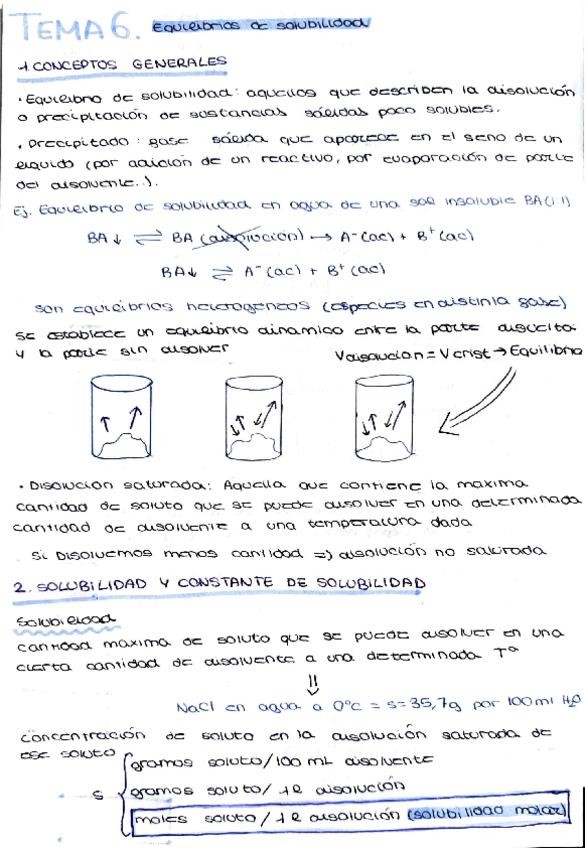 TEMA 6. EQUILIBRIOS DE SOLUBILIDAD
1 CONCEPTOS GENERALES
· Equilibrio de solubilidad: aquellos que describen la disolución
o precipitación de sustancias sólidas poco solubles.
· Precipitado: fase sólida que aparece en el seno de un
líquido (por adición de un reactivo, por evaporación de parte
del disolvente..).
Ej. Equilibrio de solubilidad en agua de una sal insoluble BA(1:1)
BA↓ ⇌ BA (disolución) → A⁻(ac) + B⁺(ac)
BA↓ ⇌ A⁻(ac) + B⁺(ac)
son equilibrios heterogéneos (especies en distinta fase)
se establece un equilibrio dinámico entre la parte disuelta
y la parte sin disolver
Vdisolución = Vcrist → Equilibrio
· Disolución saturada: Aquella que contiene la máxima
cantidad de soluto que se puede disolver en una determinada
cantidad de disolvente a una temperatura dada
Si Disolvemos menos cantidad => disolución no saturada
2. SOLUBILIDAD Y CONSTANTE DE SOLUBILIDAD
Solubilidad
cantidad máxima de soluto que se puede disolver en una
cierta cantidad de disolvente a una determinada Tª
⇓
NaCl en agua a 0ºC = s=35,7g por 100ml H₂O
concentración de soluto en la disolución saturada de
ese soluto
gramos soluto/100 mL disolvente
s gramos soluto/1l disolución
moles soluto/1l disolución (solubilidad molar)